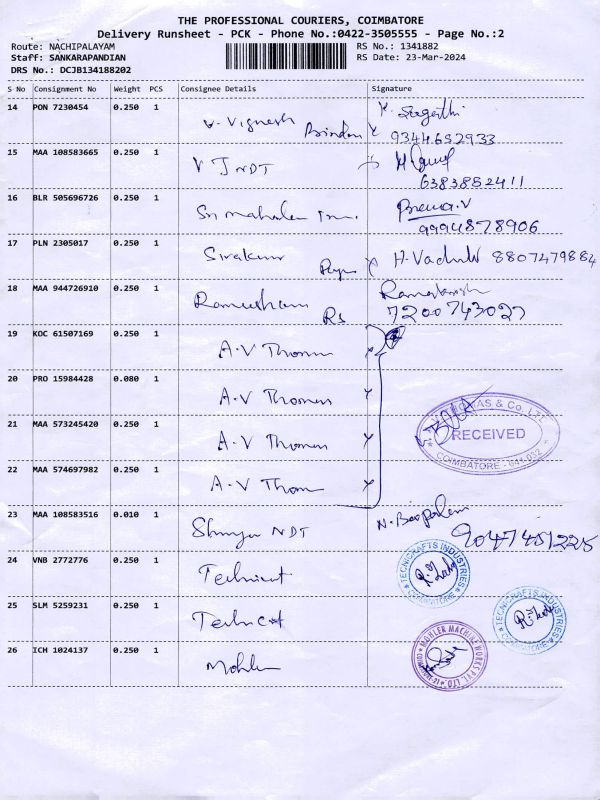 THE PROFESSIONAL COURIERS, COIMBATORE
Delivery Runsheet - PCK - Phone No.:0422-3505555 - Page No.:2
Route: NACHIPALAYAM RS No.: 1341882
Staff: SANKARAPANDIAN RS Date: 23-Mar-2024
DRS No.: DCJB134188202
S No Consignment No Weight PCS Consignee Details Signature
14 PON 7230454 0.250 1
V. Vignesh
9344652933
15 MAA 108583665 0.250 1
V J NDT
6383852411
16 BLR 505696726 0.250 1
Sri
9994878906
17 PLN 2305017 0.250 1
Sivakumar
8807479884
18 MAA 944726910 0.250 1
Rs
7200743027
19 KOC 61507169 0.250 1
A.V Thomas
20 PRO 15984428 0.080 1
A.V Thomas
21 MAA 573245420 0.250 1
A.V Thomas
22 MAA 574697982 0.250 1
A.V Thomas
THOMAS & Co. LTD.
RECEIVED
COIMBATORE - 641 032
23 MAA 108583516 0.010 1
NDT
9047451225
24 VNB 2772776 0.250 1
TECNICRAFTS INDUSTRIES
COIMBATORE
25 SLM 5259231 0.250 1
TECNICRAFTS INDUSTRIES
COIMBATORE
26 ICH 1024137 0.250 1
Mohler
MOHLER MACHINE WORKS PVT. LTD